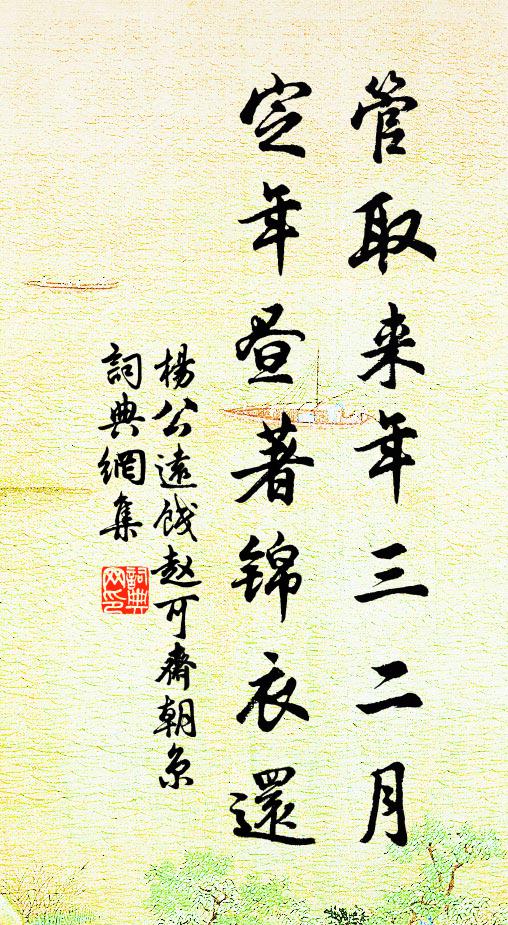 管取来年三二月
定年昼著锦衣還
楊公遠餞赵可齋朝京
詞典網集
詞典
网印